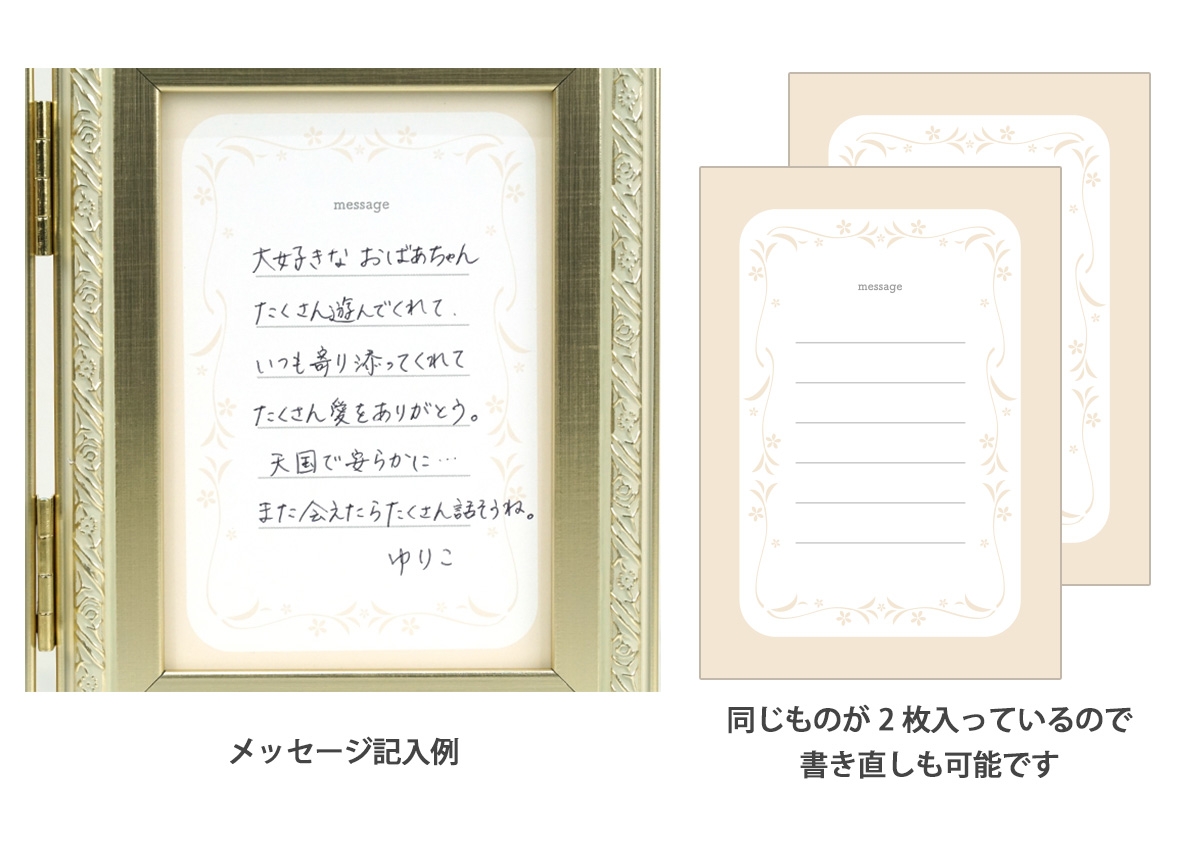 message
大好きな おばあちゃん
たくさん遊んでくれて.
いつも寄り添ってくれて
たくさん愛をありがとう。
天国で安らかに…
また会えたらたくさん話そうね。
ゆりこ
メッセージ記入例
message
同じものが2枚入っているので
書き直しも可能です